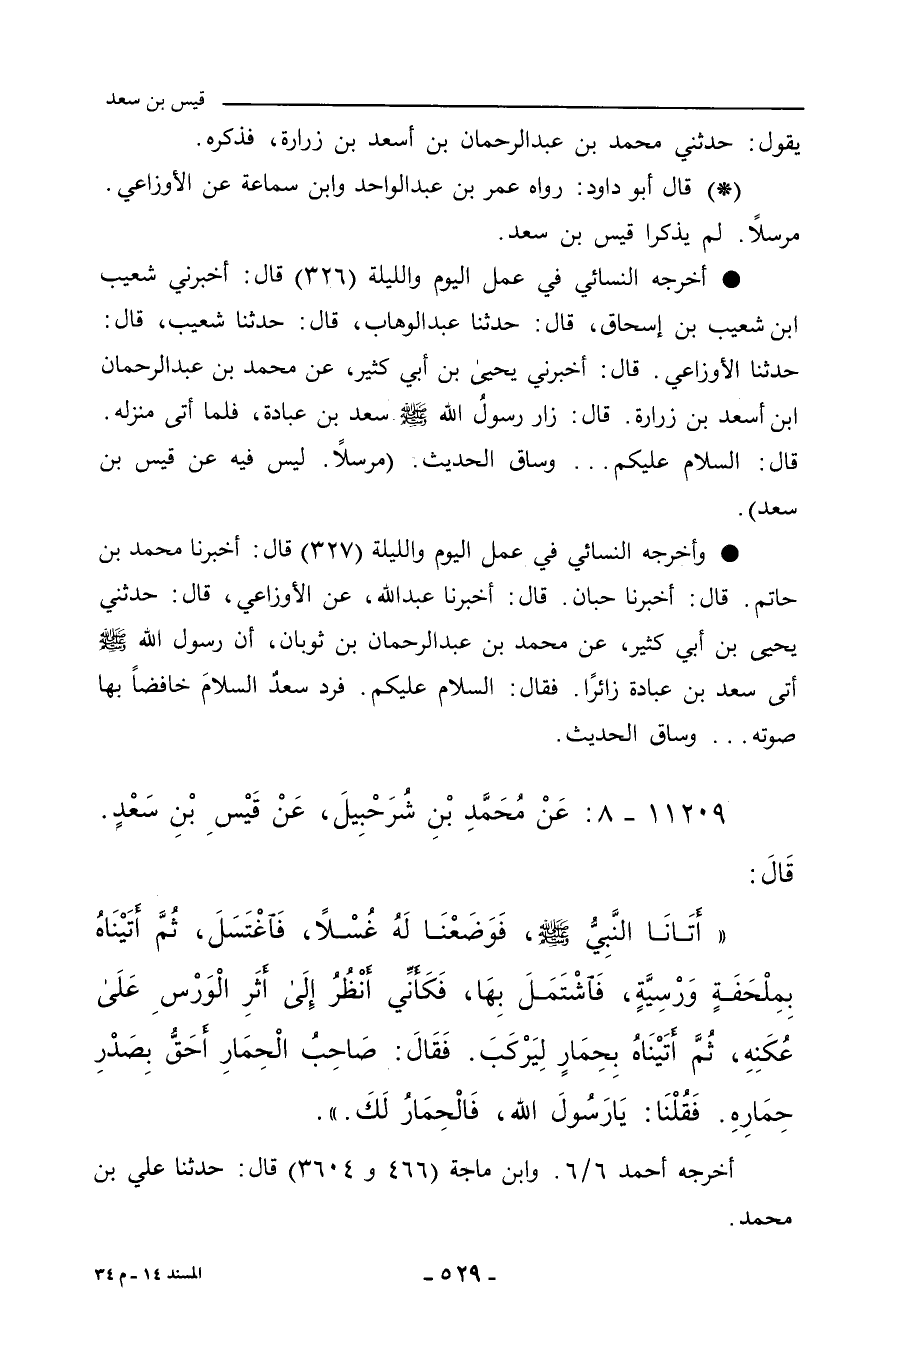 قيس بن سعد
يقول: حدثني محمد بن عبدالرحمان بن أسعد بن زرارة، فذكره.
(*) قال أبو داود: رواه عمر بن عبدالواحد وابن سماعة عن الأوزاعي.
مرسلاً. لم يذكرا قيس بن سعد.
● أخرجه النسائي في عمل اليوم والليلة (٣٢٦) قال: أخبرني شعيب
ابن شعيب بن إسحاق، قال: حدثنا عبدالوهاب، قال: حدثنا شعيب، قال:
حدثنا الأوزاعي. قال: أخبرني يحيىٰ بن أبي كثير، عن محمد بن عبدالرحمان
ابن أسعد بن زرارة. قال: زار رسولُ الله ﷺ سعد بن عبادة، فلما أتى منزله.
قال: السلام عليكم... وساق الحديث. (مرسلاً. ليس فيه عن قيس بن
سعد).
● وأخرجه النسائي في عمل اليوم والليلة (٣٢٧) قال: أخبرنا محمد بن
حاتم. قال: أخبرنا حبان. قال: أخبرنا عبدالله، عن الأوزاعي، قال: حدثني
يحيى بن أبي كثير، عن محمد بن عبدالرحمان بن ثوبان، أن رسول الله ﷺ
أتى سعد بن عبادة زائرًا. فقال: السلام عليكم. فرد سعدٌ السلامَ خافضاً بها
صوته... وساق الحديث.
١١٢٠٩ - ٨: عَنْ مُحَمَّدِ بْنِ شُرَحْبِيلَ، عَنْ قَيْسِ بْنِ سَعْدٍ.
قَالَ:
« أَتَانَا النَّبِيُّ ﷺ، فَوَضَعْنَا لَهُ غُسْلاً، فَاغْتَسَلَ، ثُمَّ أَتَيْنَاهُ
بِمِلْحَفَةٍ وَرْسِيَّةٍ، فَاشْتَمَلَ بِهَا، فَكَأَنِّي أَنْظُرُ إِلَىٰ أَثَرِ الْوَرْسِ عَلَىٰ
عُكَنِهِ، ثُمَّ أَتَيْنَاهُ بِحِمَارٍ لِيَرْكَبَ. فَقَالَ: صَاحِبُ الْحِمَارِ أَحَقُّ بِصَدْرِ
حِمَارِهِ. فَقُلْنَا: يَارَسُولَ الله، فَالْحِمَارُ لَكَ.».
أخرجه أحمد ٦/٦. وابن ماجة (٤٦٦ و ٣٦٠٤) قال: حدثنا علي بن
محمد.
- ٥٢٩ -
المسند ١٤ - م ٣٤